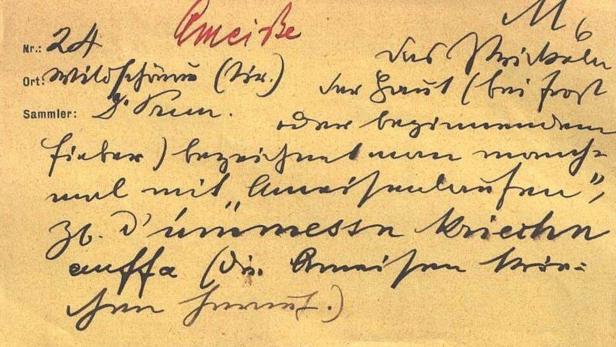 Ameiße
M6
Nr.: 24
das Prickeln
Ort: Wildschönau (Tir.) der Haut (bei Frost
Sammler:
oder beginnendem
Fieber) bezeichnet man manch-
mal mit "Ameisenlaufen",
zb. d'ummessn kriechn
auffa (die Ameisen krie-
chen herauf.)